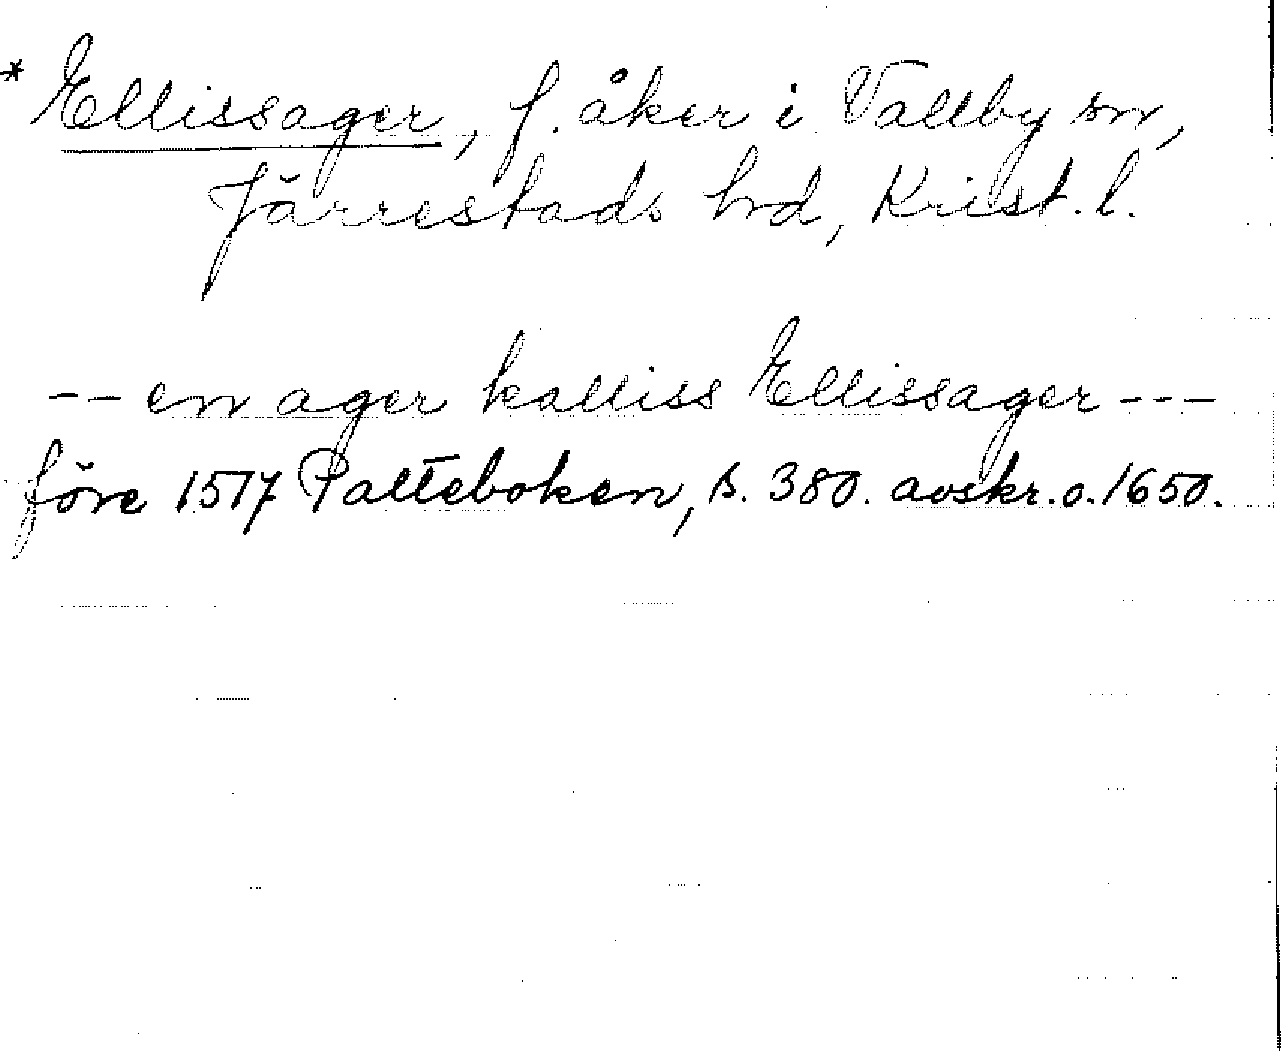 * Ellissager, f. åker i Vallby sn,
Järrestads hrd, Krist. l.
-- en ager kalliss Ellissager ---
före 1517 Palteboken, s. 380. avskr. o. 1650.